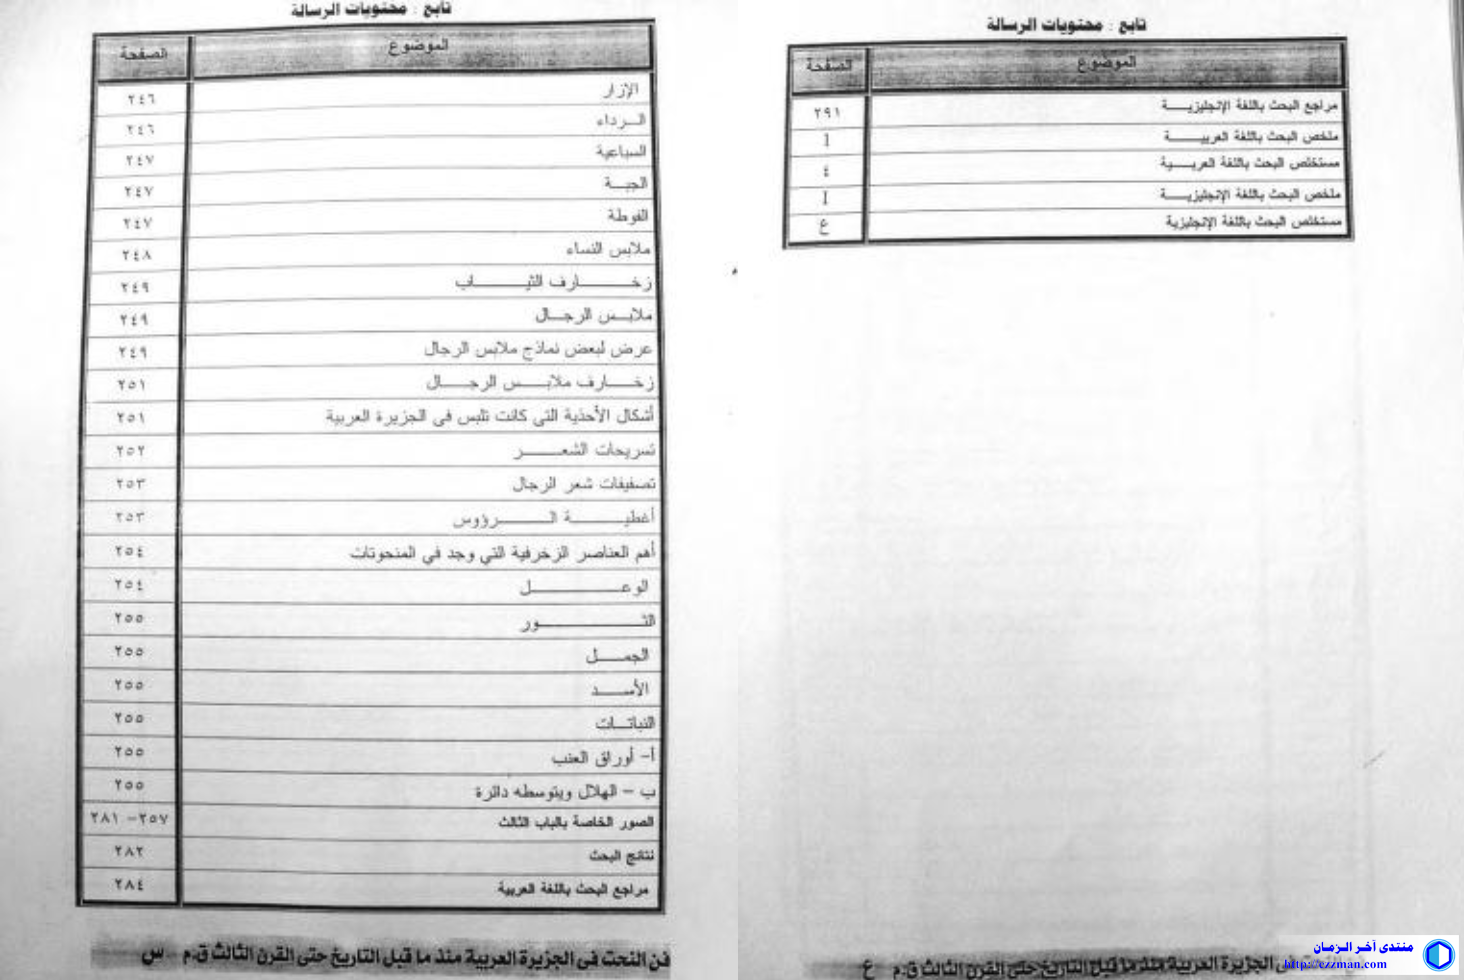 تابع : محتويات الرسالة
الموضوع الصفحة
الإزار ٢٤٦
الــرداء ٢٤٦
السباعية ٢٤٧
الجبــة ٢٤٧
الفوطة ٢٤٧
ملابس النساء ٢٤٨
زخــــــارف الثيــــــاب ٢٤٩
ملابــس الرجــال ٢٤٩
عرض لبعض نماذج ملابس الرجال ٢٤٩
زخــــارف ملابــــس الرجــــال ٢٥١
أشكال الأحذية التى كانت تلبس فى الجزيرة العربية ٢٥١
تسريحات الشعــــــر ٢٥٢
تصفيفات شعر الرجال ٢٥٣
أغطيــــــــة الــــــــرؤوس ٢٥٣
أهم العناصر الزخرفية التي وجد في المنحوتات ٢٥٤
الوعــــــــــــــل ٢٥٤
الثــــــــــــــور ٢٥٥
الجمــــل ٢٥٥
الأســــد ٢٥٥
النباتــات ٢٥٥
أ- أوراق العنب ٢٥٥
ب – الهلال ويتوسطه دائرة ٢٥٥
الصور الخاصة بالباب الثالث ٢٥٧– ٢٨١
نتائج البحث ٢٨٢
مراجع البحث باللغة العربية ٢٨٤
فن النحت فى الجزيرة العربية منذ ما قبل التاريخ حتى القرن الثالث ق.م س
تابع : محتويات الرسالة
الموضوع الصفحة
مراجع البحث باللغة الإنجليزيــــة ٢٩١
ملخص البحث باللغة العربيــــــة أ
مستخلص البحث باللغة العربــــية ٤
ملخص البحث باللغة الإنجليزيــــة I
مستخلص البحث باللغة الإنجليزية ع
النحت فى الجزيرة العربية منذ ما قبل التاريخ حتى القرن الثالث ق.م ع
منتدى آخر الزمان
http://ezzman.com